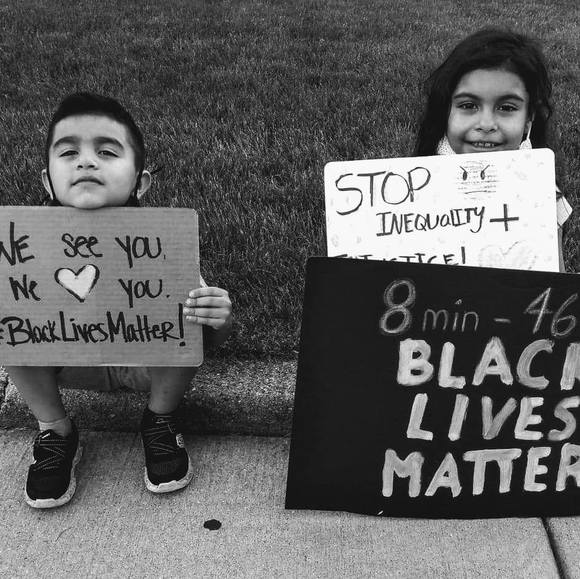 WE see you,
We you.
#BlackLivesMatter!
STOP
INEQUALITY +
INJUSTICE!
8 min - 46
BLACK
LIVES
MATTER